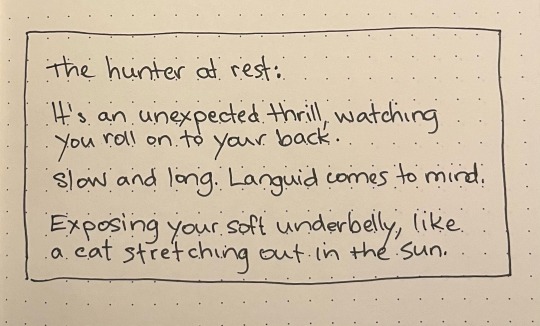 the hunter at rest:
It's an unexpected thrill, watching
you roll on to your back.
Slow and long. Languid comes to mind.
Exposing your soft underbelly, like
a cat stretching out in the sun.